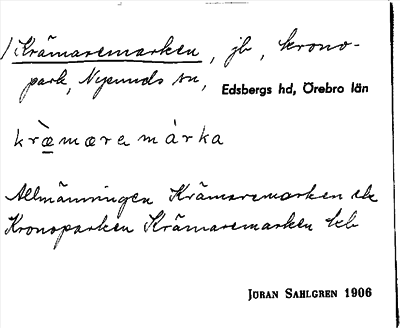 1 Krämaremarken, jb, krono-
park, Nysunds sn, Edsbergs hd, Örebro län
kræ̀mære màrka
Allmänningen Krämaremarken
Kronoparken Krämaremarken
JÖRAN SAHLGREN 1906